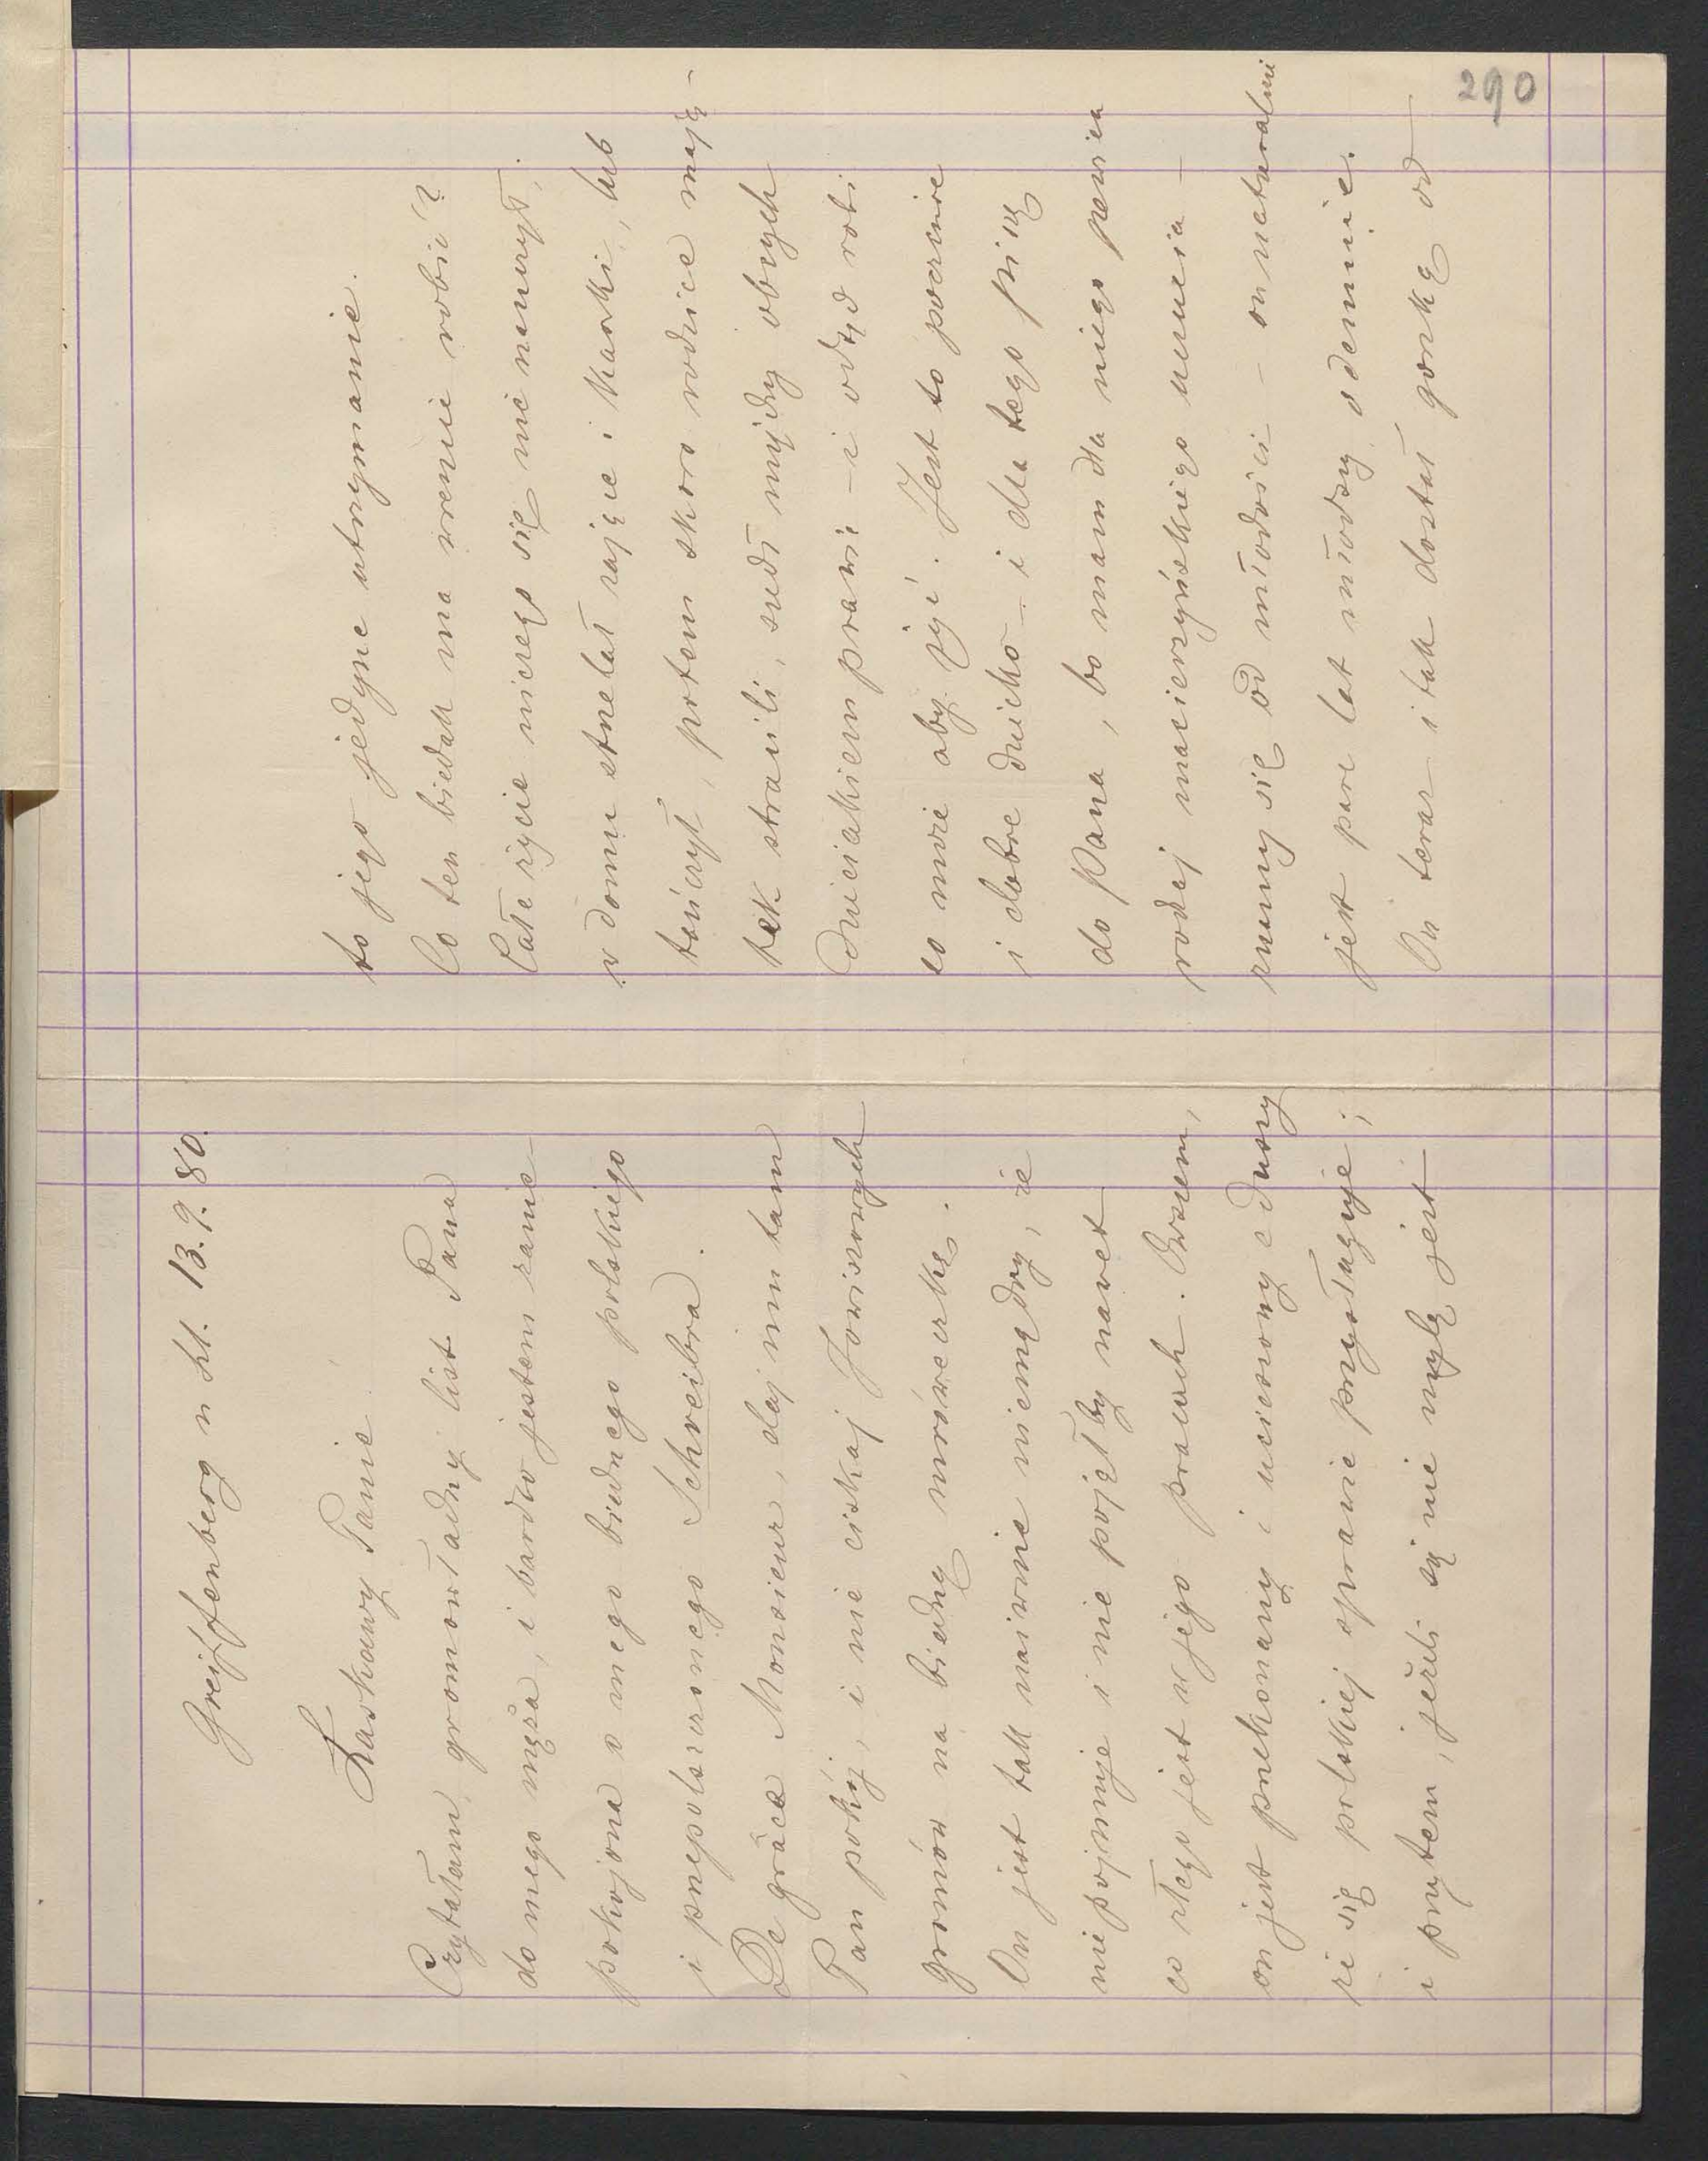 290
Greiffenberg n Kl. 13. 9. 80.
Łaskawy Panie
Czytałam, gromowładny list Pana
do mego męża, i bardzo jestem zanie
pokojona o mego biednego polskiego
i przepolszczonego Schreibra.
De grâce Monsieur, daj mu tam
Pan pokój, i nie ciskaj Jowiszowych
gromów na biedną mróweczkę.
On jest tak naiwnie niemądry, że
nie pojmuje i nie pojąłby nawet
co złego jest w jego pracach. Owszem,
on jest przekonany i ucieszony z duszy
że się polskiej sprawie przysługuje;
i przytem, jeżeli się nie mylę jest
to jego jedyne utrzymanie.
Co ten biedak ma wreście robić?
Całe życie niczego się nie nauczył,
w domu strzelał zające i kaczki, lub
tańczył, potem skoro rodzice mają-
tek stracili, szedł między obcych
dzieciakiem prawie – i odtąd robi
co może aby żyć. Jest to poczciwe
i dobre dziecko – i dla tego piszę
do Pana, bo mam dla niego pewien
rodzaj macierzyńskiego uczucia –
znamy się od młodości – on naturalnie
jest parę lat młodszy odemnie.
On teraz i tak dostał gorzką od